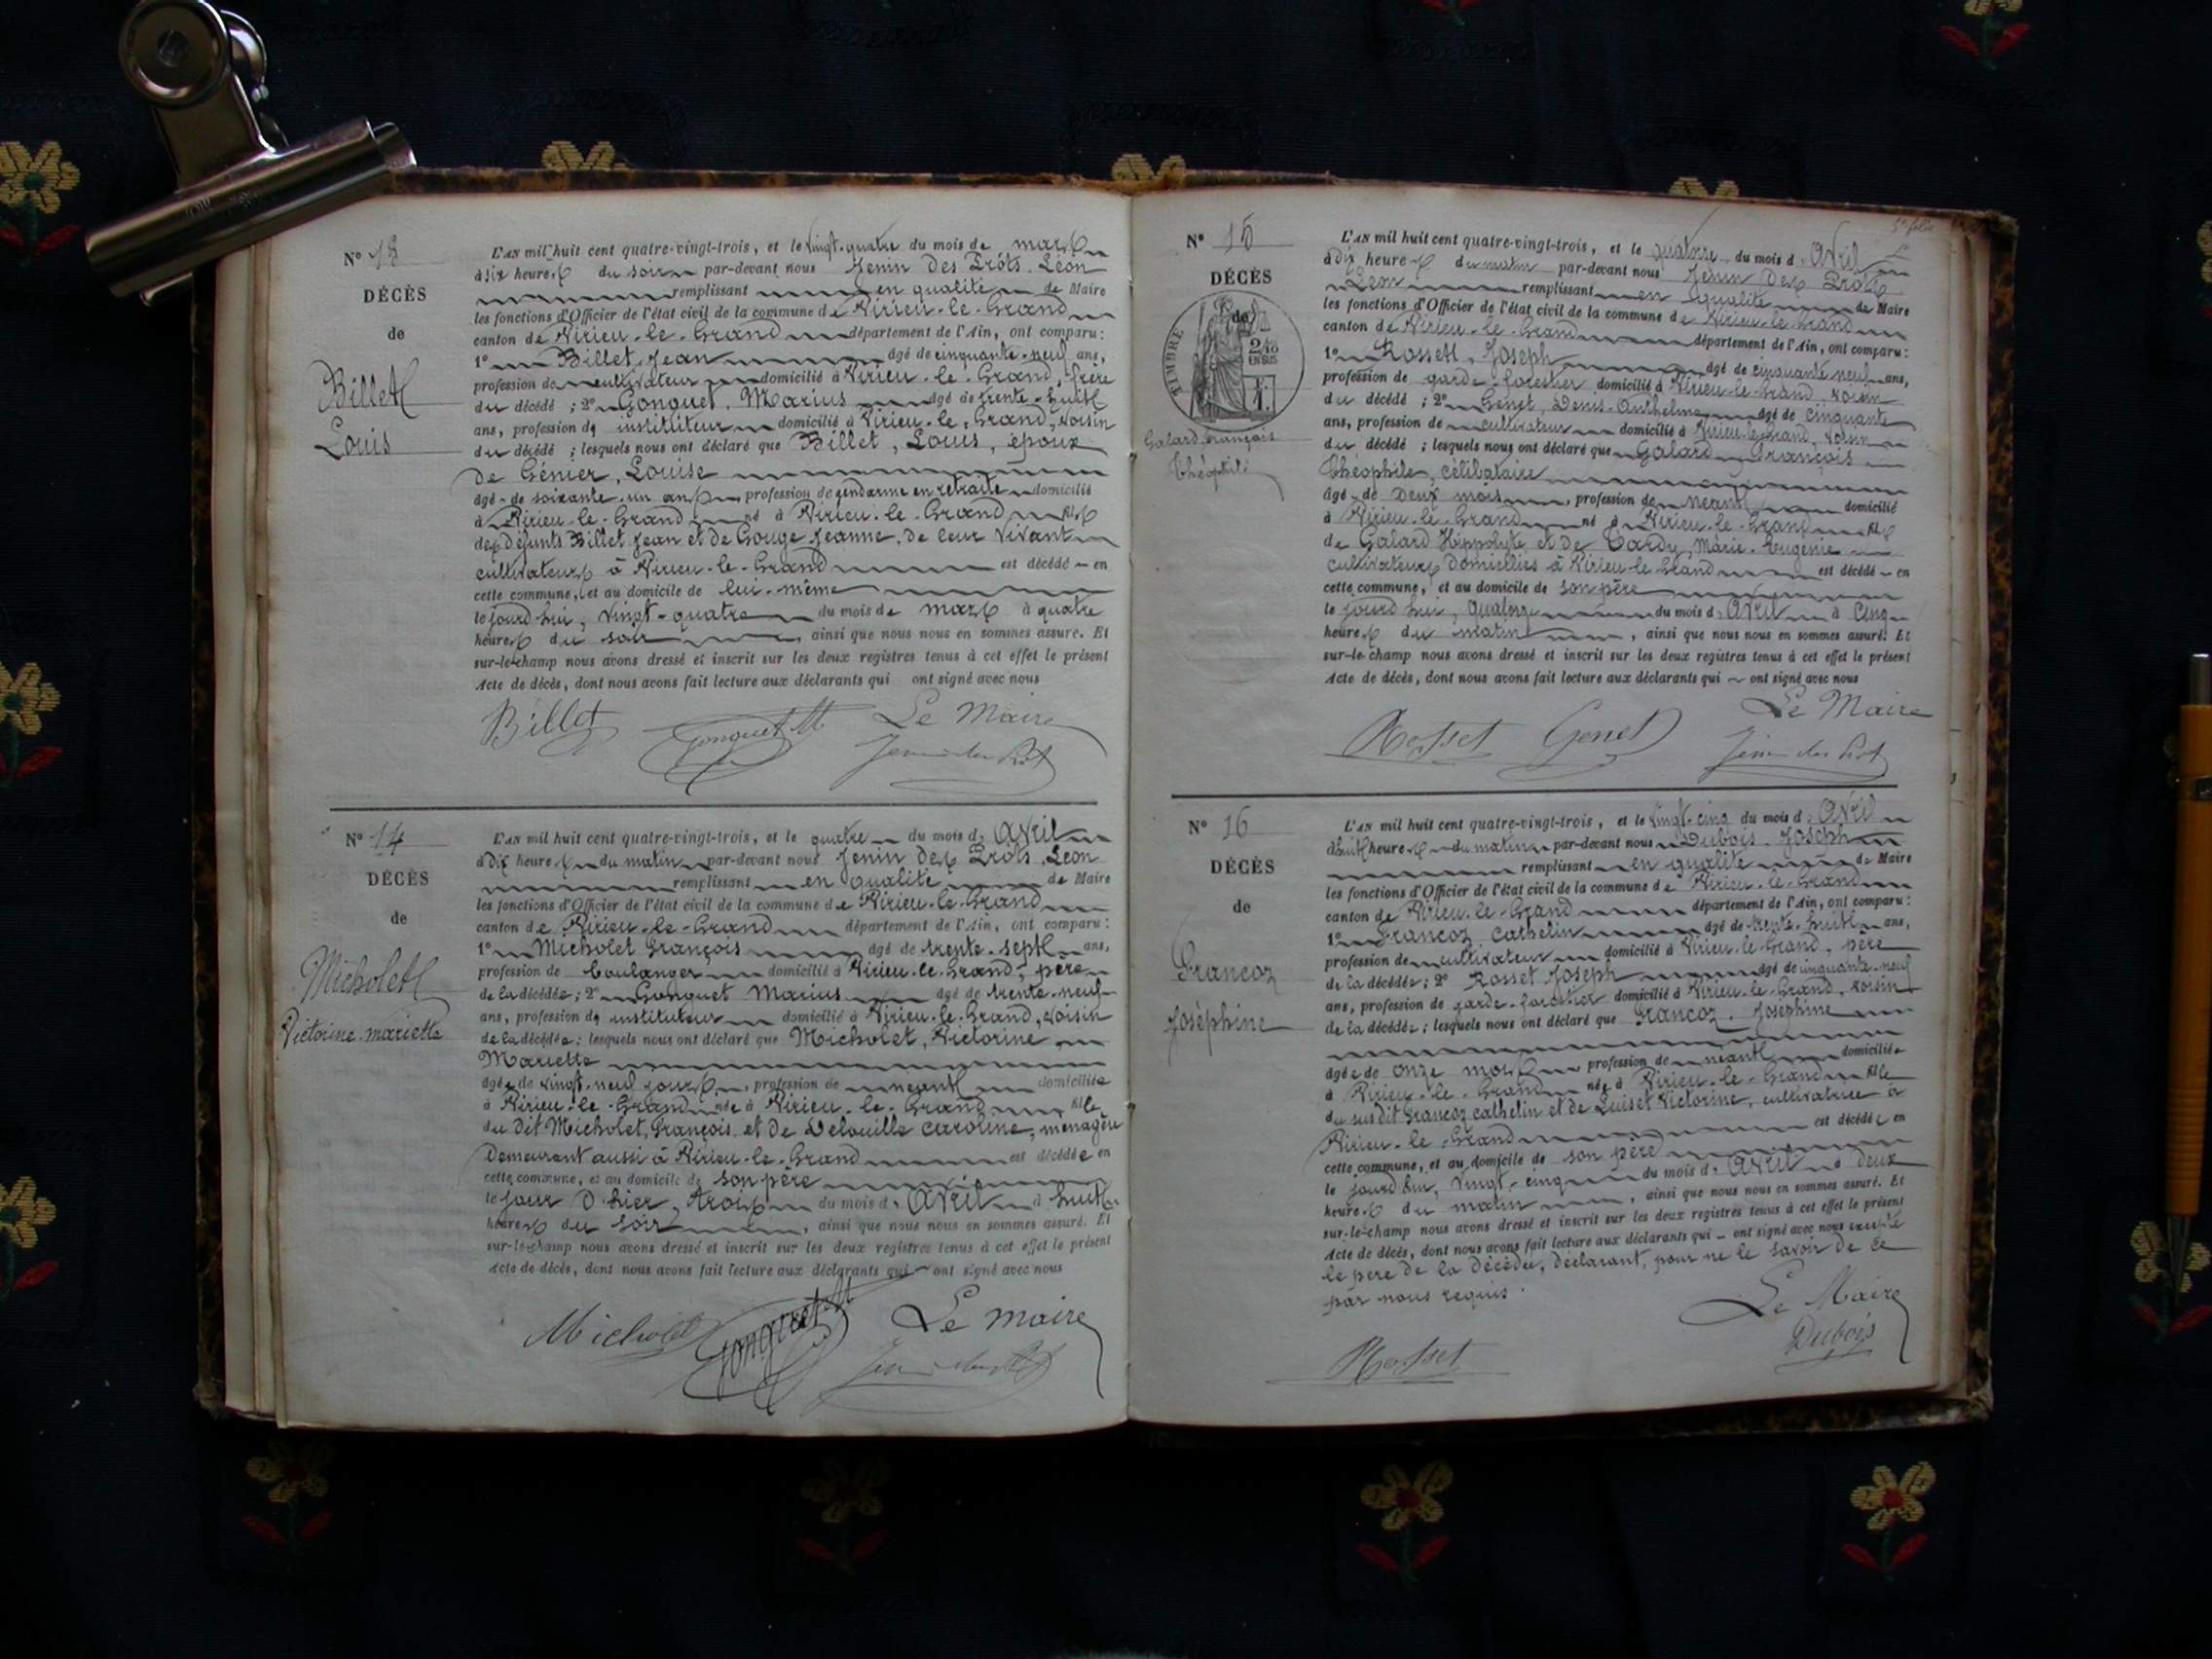 N° 13
DÉCÈS
de
Billet
Louis
L'AN mil huit cent quatre-vingt-trois, et le vingt-quatre du mois de mars
à six heures du soir par-devant nous Jenin Des Prôts Léon
remplissant en qualité de Maire
les fonctions d'Officier de l'état civil de la commune de Virieu-le-Grand
canton de Virieu-le-Grand département de l'Ain, ont comparu :
1° Billet, Jean âgé de cinquante-neuf ans,
profession de cultivateur domicilié à Virieu-le-Grand, frère
du décédé ; 2° Gonguet, Marius âgé de trente-huit
ans, profession d'instituteur domicilié à Virieu-le-Grand, voisin
du décédé ; lesquels nous ont déclaré que Billet, Louis, époux
de Génier, Louise
âgé de soixante-un ans, profession de gendarme en retraite domicilié
à Virieu-le-Grand né à Virieu-le-Grand fils
des défunts Billet Jean et de Gouge Jeanne, de leur vivant
cultivateurs à Virieu-le-Grand est décédé en
cette commune, et au domicile de lui-même
le jourd'hui, vingt-quatre du mois de mars à quatre
heures du soir, ainsi que nous nous en sommes assuré. Et
sur-le-champ nous avons dressé et inscrit sur les deux registres tenus à cet effet le présent
Acte de décès, dont nous avons fait lecture aux déclarants qui ont signé avec nous
Billet Gonguet M Le Maire
Jenin des Prôt
N° 14
DÉCÈS
de
Micholet
Victorine mariette
L'AN mil huit cent quatre-vingt-trois, et le quatre du mois d'Avril
à dix heures du matin par-devant nous Jenin des Prôts, Léon
remplissant en qualité de Maire
les fonctions d'Officier de l'état civil de la commune de Virieu-le-Grand
canton de Virieu-le-Grand département de l'Ain, ont comparu :
1° Micholet François âgé de trente-sept ans,
profession de boulanger domicilié à Virieu-le-Grand, père
de la décédée ; 2° Gonguet Marius âgé de trente-neuf
ans, profession d'instituteur domicilié à Virieu-le-Grand, voisin
de la décédée ; lesquels nous ont déclaré que Micholet, Victorine
Mariette
âgée de vingt-neuf jours, profession de néant domiciliée
à Virieu-le-Grand née à Virieu-le-Grand fille
du dit Micholet, François et de Delouille Caroline, ménagère
Demeurant aussi à Virieu-le-Grand est décédée en
cette commune, et au domicile de son père
le jour d'hier, trois du mois d'Avril à huit
heures du soir, ainsi que nous nous en sommes assuré. Et
sur-le-champ nous avons dressé et inscrit sur les deux registres tenus à cet effet le présent
Acte de décès, dont nous avons fait lecture aux déclarants qui ont signé avec nous
Micholet Gonguet M Le maire
N° 15
DÉCÈS
de
TIMBRE
2/10
EN SUS
Galard François
théophile
L'AN mil huit cent quatre-vingt-trois, et le quatorze du mois d'Avril
à dix heures du matin par-devant nous Jenin Des Prôts
Léon remplissant en qualité de Maire
les fonctions d'Officier de l'état civil de la commune de Virieu-le-Grand
canton de Virieu-le-Grand département de l'Ain, ont comparu :
1° Rosset, Joseph âgé de cinquante-neuf ans,
profession de garde-forestier domicilié à Virieu-le-Grand, voisin
du décédé ; 2° Genet, Denis-Anthelme âgé de cinquante
ans, profession de cultivateur domicilié à Virieu-le-Grand, voisin
du décédé ; lesquels nous ont déclaré que Galard François
théophile, célibataire
âgé de Deux mois, profession de néant domicilié
à Virieu-le-Grand né à Virieu-le-Grand fils
de Galard Hippolyte et de Tardy, Marie-Eugénie
cultivateurs domiciliés à Virieu-le-Grand est décédé en
cette commune, et au domicile de son père
le jourd'hui, quatorze du mois d'Avril à cinq
heures du matin, ainsi que nous nous en sommes assuré. Et
sur-le-champ nous avons dressé et inscrit sur les deux registres tenus à cet effet le présent
Acte de décès, dont nous avons fait lecture aux déclarants qui ont signé avec nous
Rosset Genet Le Maire
Jenin des Prôt
N° 16
DÉCÈS
de
Francoz
Joséphine
L'AN mil huit cent quatre-vingt-trois, et le vingt-cinq du mois d'Avril
à huit heures du matin par-devant nous Dubois Joseph
remplissant en qualité de Maire
les fonctions d'Officier de l'état civil de la commune de Virieu-le-Grand
canton de Virieu-le-Grand département de l'Ain, ont comparu :
1° Francoz Cathelin âgé de trente-huit ans,
profession de cultivateur domicilié à Virieu-le-Grand, père
de la décédée ; 2° Rosset Joseph âgé de cinquante-neuf
ans, profession de garde-forestier domicilié à Virieu-le-Grand, voisin
de la décédée ; lesquels nous ont déclaré que Francoz, Joséphine
âgée de onze mois profession de néant domiciliée
à Virieu-le-Grand née à Virieu-le-Grand fille
du susdit Francoz Cathelin et de Luiset Victorine, cultivatrice à
Virieu-le-Grand est décédée en
cette commune, et au domicile de son père
le jourd'hui, vingt-cinq du mois d'Avril à deux
heures du matin, ainsi que nous nous en sommes assuré. Et
sur-le-champ nous avons dressé et inscrit sur les deux registres tenus à cet effet le présent
Acte de décès, dont nous avons fait lecture aux déclarants qui ont signé avec nous excepté
le père de la décédée, déclarant, pour ne le savoir de ce
par nous requis.
Rosset Le Maire
Dubois